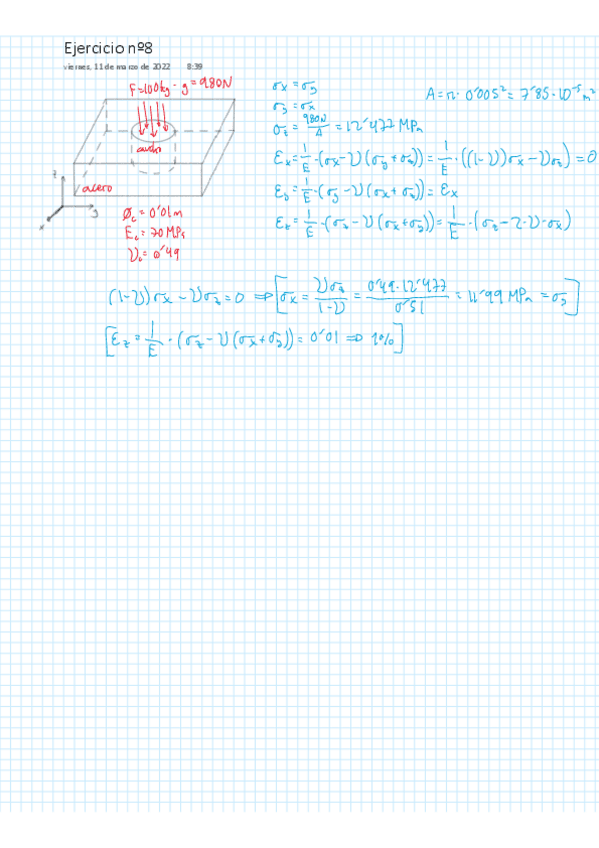 Ejercicio nº8
viernes, 11 de marzo de 2022 8:39
F=100kg · g = 980N
acero
z
y
x
Ø_c = 0'01m
E_c = 70 MPa
ν_c = 0'49
σx = σy
σy = σx
σz = 980N/A = 12'477 MPa
A = π · 0'005² = 7'85·10⁻⁵ m²
εx = 1/E · (σx - ν(σy + σz)) = 1/E · ((1-ν)σx - νσz) = 0
εy = 1/E · (σy - ν(σx + σz)) = εx
εz = 1/E · (σz - ν(σx + σy)) = 1/E · (σz - 2·ν·σx)
(1-ν)σx - νσz = 0 ⇒ [σx = νσz/(1-ν) = 0'49·12'477/0'51 = 11'99 MPa = σy]
[εz = 1/E · (σz - ν(σx + σy)) = 0'01 ⇒ 1%]